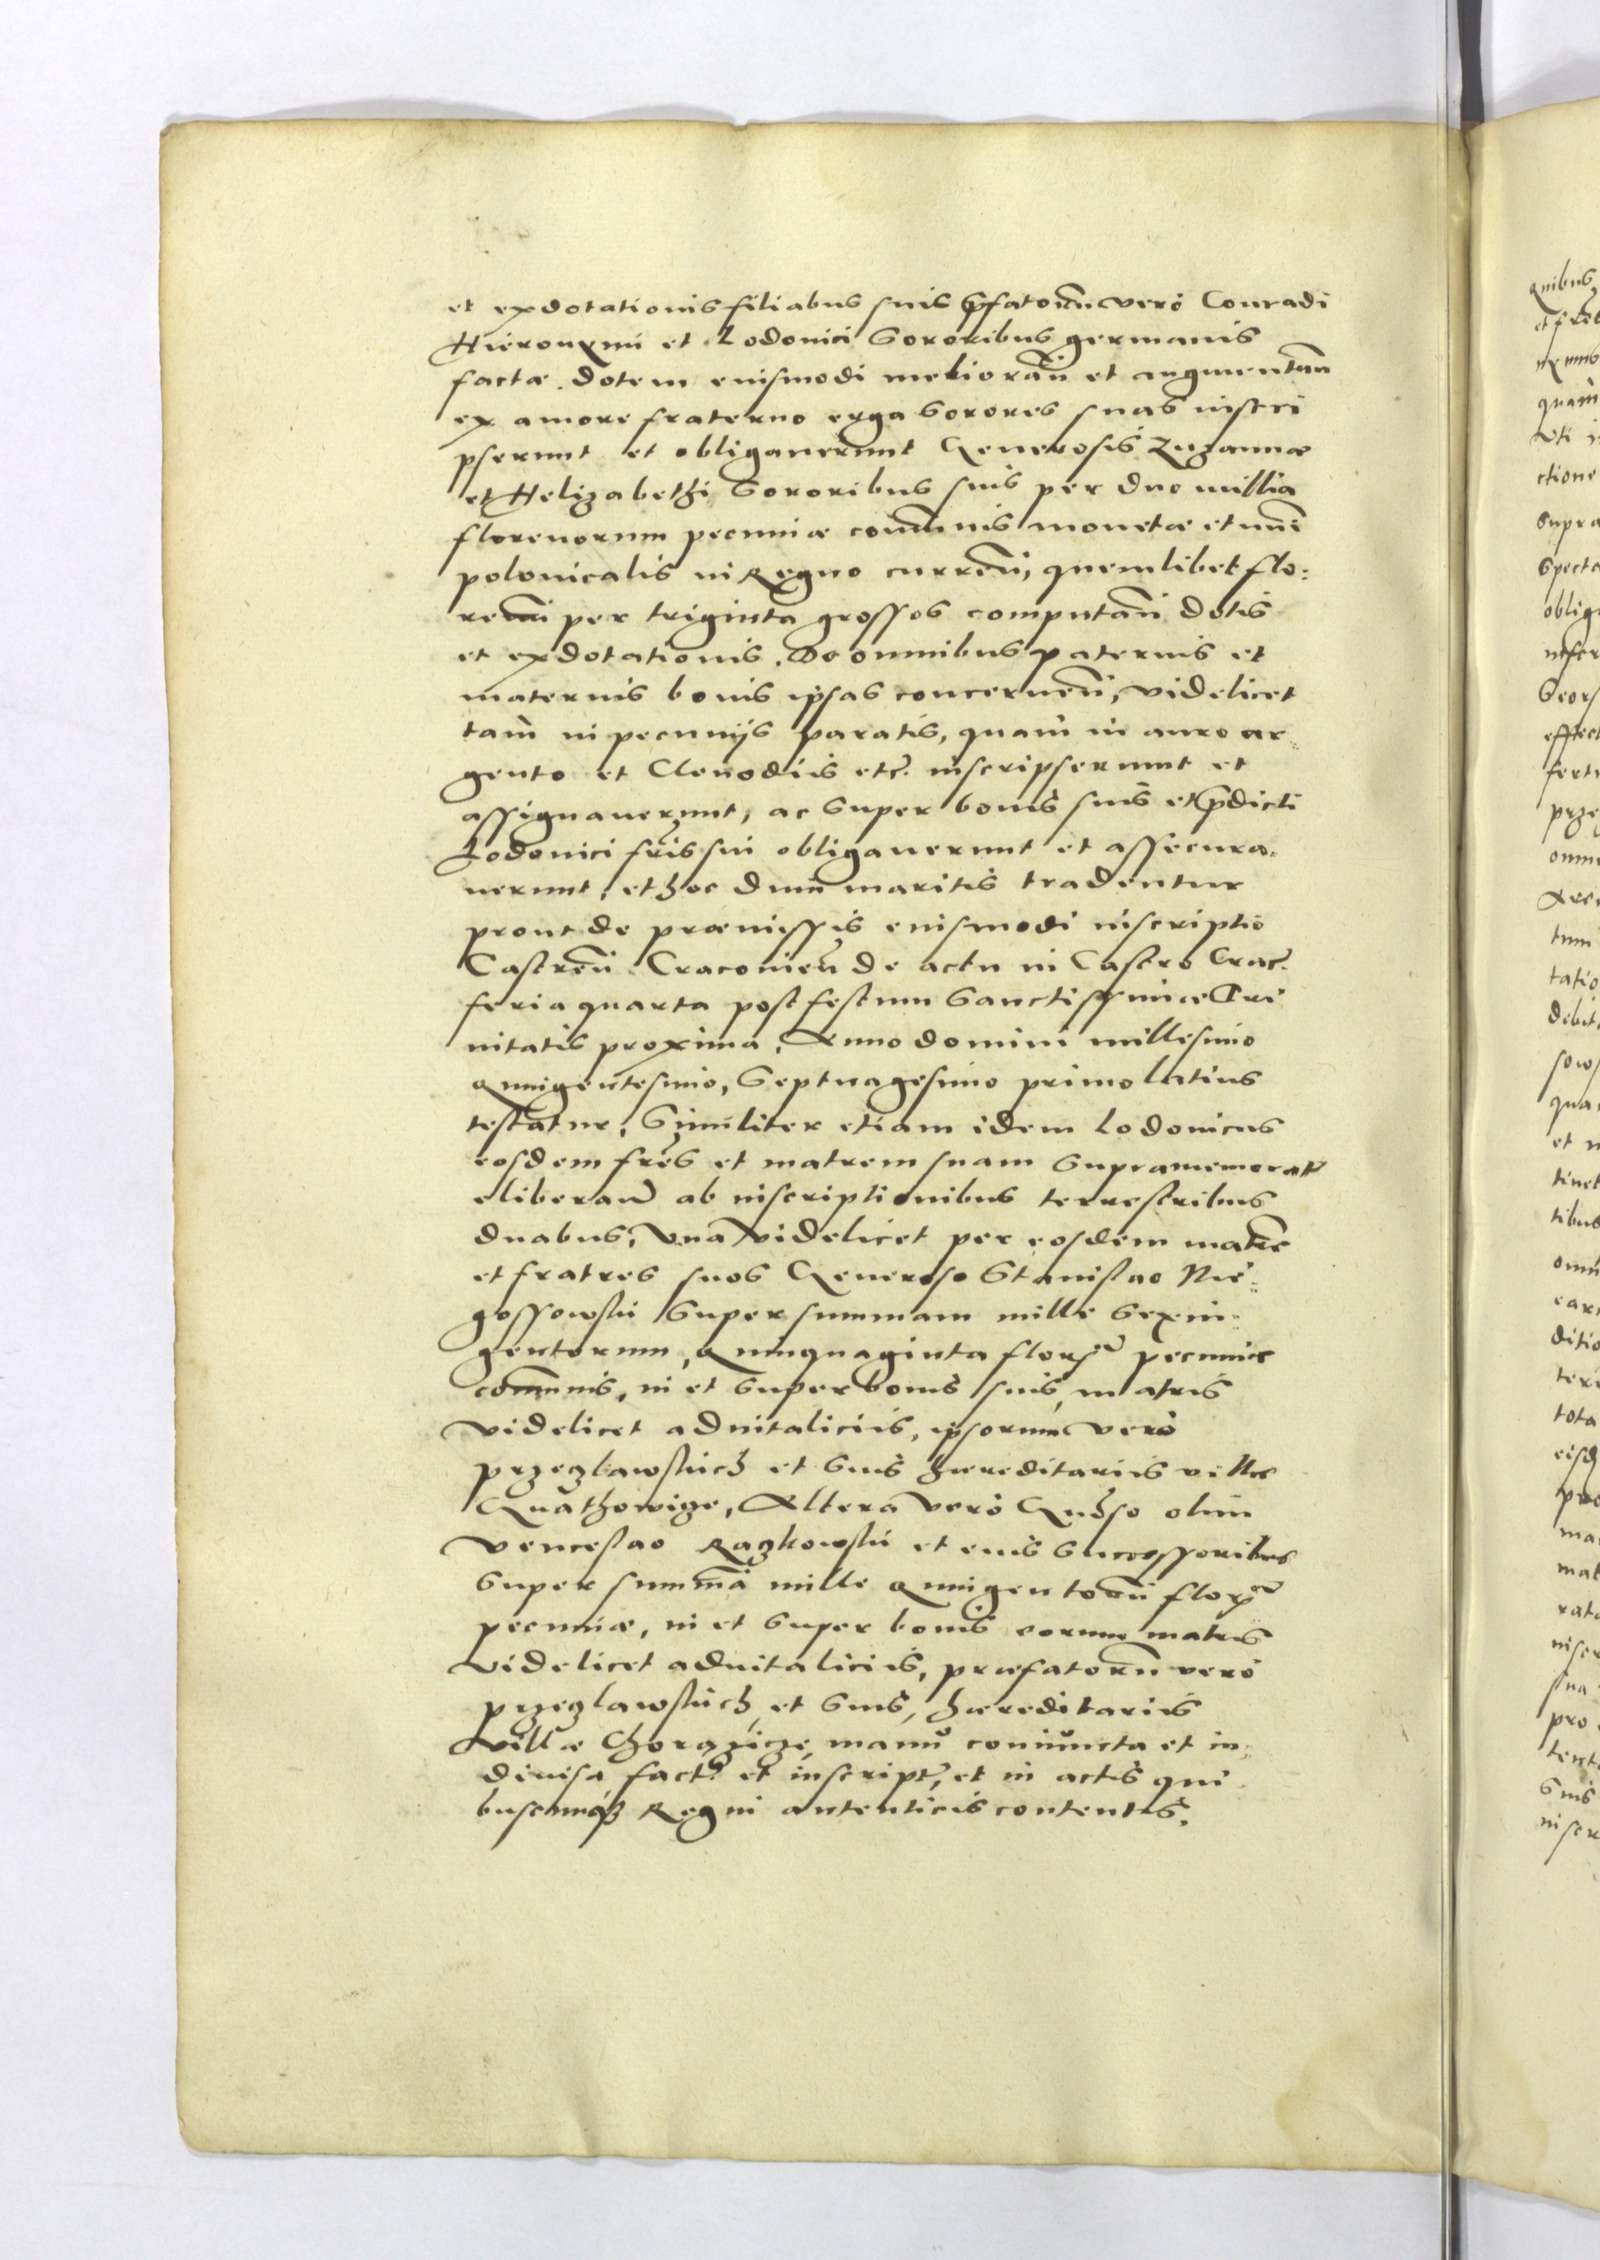 et exdotationis filiabus suis p̄fatorum vero Conradi
Hieronymi et Lodovici Sororibus germanis
factæ. dotem euismodi meliorān et augmentān
ex amore fraterno erga Sorores suas inscri
pserunt et obligaverunt Generosis Zuzannæ
et Helizabethi Sororibus suis per duo millia
florenorum pecuniæ com̄unis monetæ et num̄i
polonicalis in Regno curren̄, quemlibet flo:
renū per triginta grossos computān dotis
et exdotationis. De omnibus paternis et
maternis bonis ipsas concernen̄, videlicet
tam in pecunijs paratis, quam in auro ar:
gento et Clenodiis etc̄. inscripserunt et
assignaverunt, ac Super bonis suis et p̄dicti
Lodovici fr̄is sui obligaverunt et assecura:
verunt, et hoc dum maritis tradentur
prout de præmissis euismodi inscriptio
Castren̄ Cracovien̄ de actu in Castro Crac̄.
feria quarta post festum Sanctissimæ Tri
nitatis proxima, Anno domini millesimo
quingentesimo, Septuagesimo primo latius
testatur, Similiter etiam idem Lodovicus
eosdem fr̄es et matrem suam Supramemorat̄
eliberav̄ ab inscriptionibus terrestribus
duabus, Vna videlicet per eosdem matrē
et fratres suos Generoso Stanislao Nie:
gossowski Super summam mille Sexin:
gentorum, Quinquaginta flor̄ pecuniæ
com̄unis, in et Super bonis suis, matris
videlicet advitaliciis, ipsorum vero
przezlawskich et Suis hæreditariis villæ
Gnathowize, Altera vero Gn̄so olim
Venceslao Razkowski et euis Successoribus
Super summā mille quingentorū flor̄
pecuniæ, in et Super bonis eorum matris
Videlicet advitaliciis, præfatorū vero
przezlawskich et Suis, hæreditariis
Villæ Chorazicze, manu coniuncta et in:
divisa fact̄. et inscript̄, et in actis qui
buscunq̨ Regni autenticis contentis.